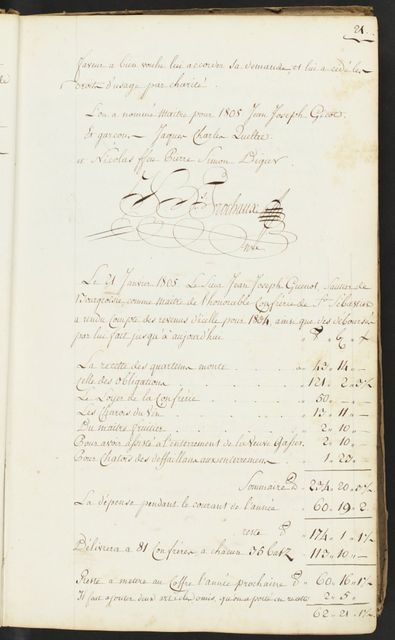 24.
faveur a bien voulu lui accorder sa demande, et lui a cédé les
droits d'usage par charité.
L'on a nommé maitre pour 1805 Jean Joseph
de garcons — Jaques Charles Queltre
et Nicolas ffeu Pierre Simon
Trochaux
Le 21 Janvier 1805. Le Sieur Jean Joseph Guenot, Sautier de
Bourgeoisie, comme maitre de l'honorable Confrérie de St. Sebastien
a rendu Compte des revenus d'icelle pour 1804, ainsi que des deboursés
par lui fait jusqu'à aujourd'hui
La recette des quarterons monte 43 „ 14 „ —
Celle des obligations 121 „ 2 „
Le Loyer de la Confrérie 50 „ — „ —
Les Charois du Vin 13 „ 11 „ —
Du maitre fruitier 2 „ 10 „ —
Pour avoir assisté à l'enterrement de la Veuve 2 „ 10 „ —
Pour Chatois des deffaillans aux enterremens 1 „ 23 „ —
Sommaire 234 „ 20 „
La dépense pendant le courant de l'année 60 „ 19 „ 2
reste 174 „ 1 „
Délivrera a 81 Confrères a chacun 35 batz 113 „ 10 „ —
Reste a mettre au Coffre l'année prochaine 60 „ 16 „
Il faut ajouter deux articles omis, qu'on a porté en recette 2 „ 5 „
62 „ 21 „